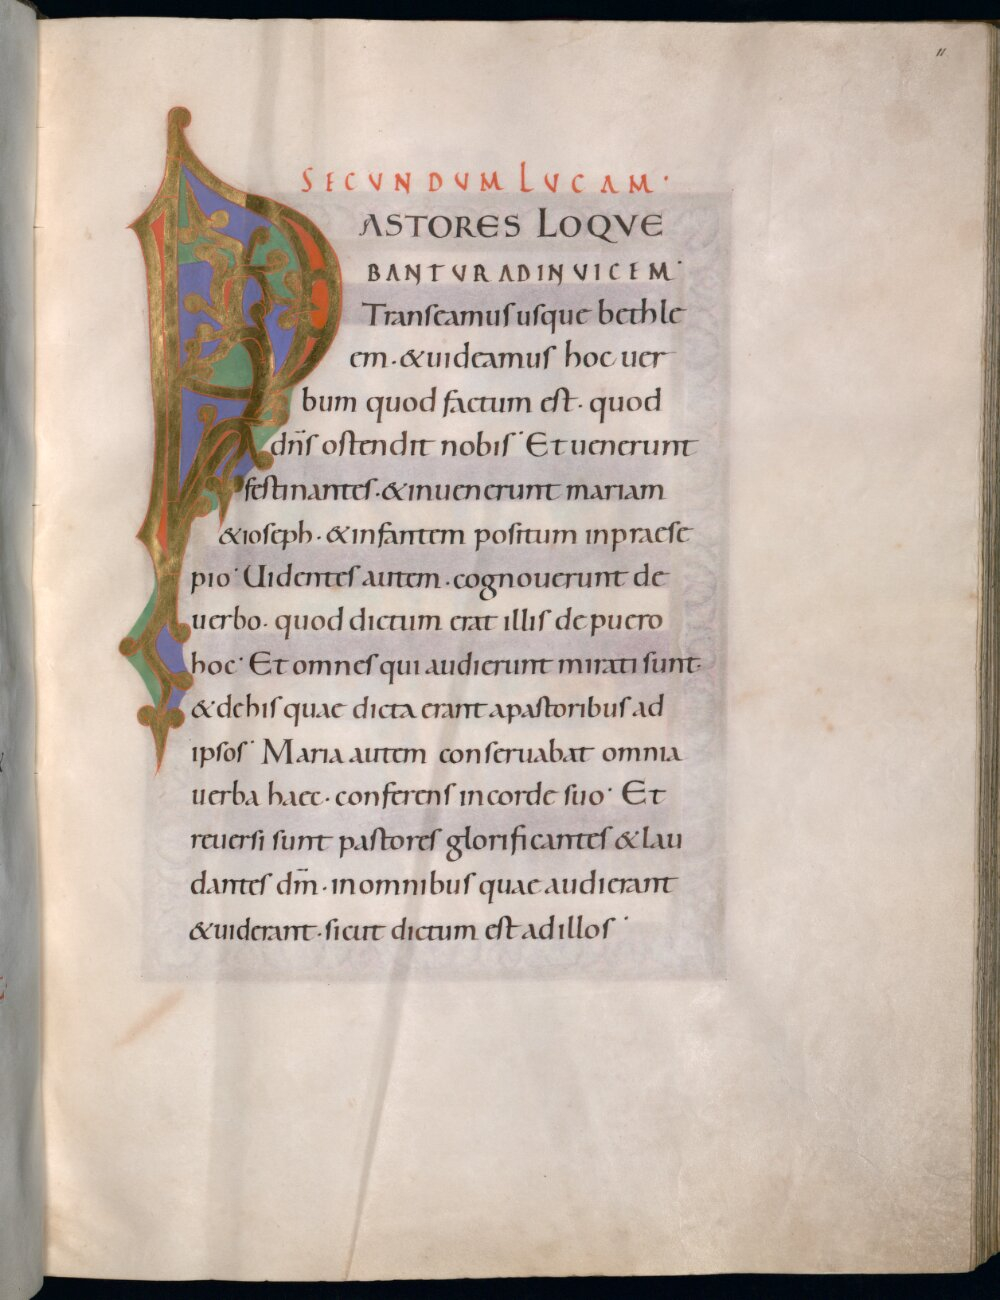 11
SECUNDUM LUCAM·
PASTORES LOQVE
BANTVR AD INVICEM·
Transeamus usque bethle
em·&uideamus hoc uer
bum quod factum est· quod
dn̄s ostendit nobis· Et uenerunt
festinantes·&inuenerunt mariam
&ioseph·&infantem positum inpraese
pio· Uidentes autem·cognouerunt de
uerbo· quod dictum erat illis de puero
hoc· Et omnes qui audierunt mirati sunt·
&dehis quae dicta erant apastoribus ad
ipsos· Maria autem conseruabat omnia
uerba haec·conferens incorde suo· Et
reuersi sunt pastores glorificantes &lau
dantes dm̄·inomnibus quae audierant
&uiderant·sicut dictum est ad illos·